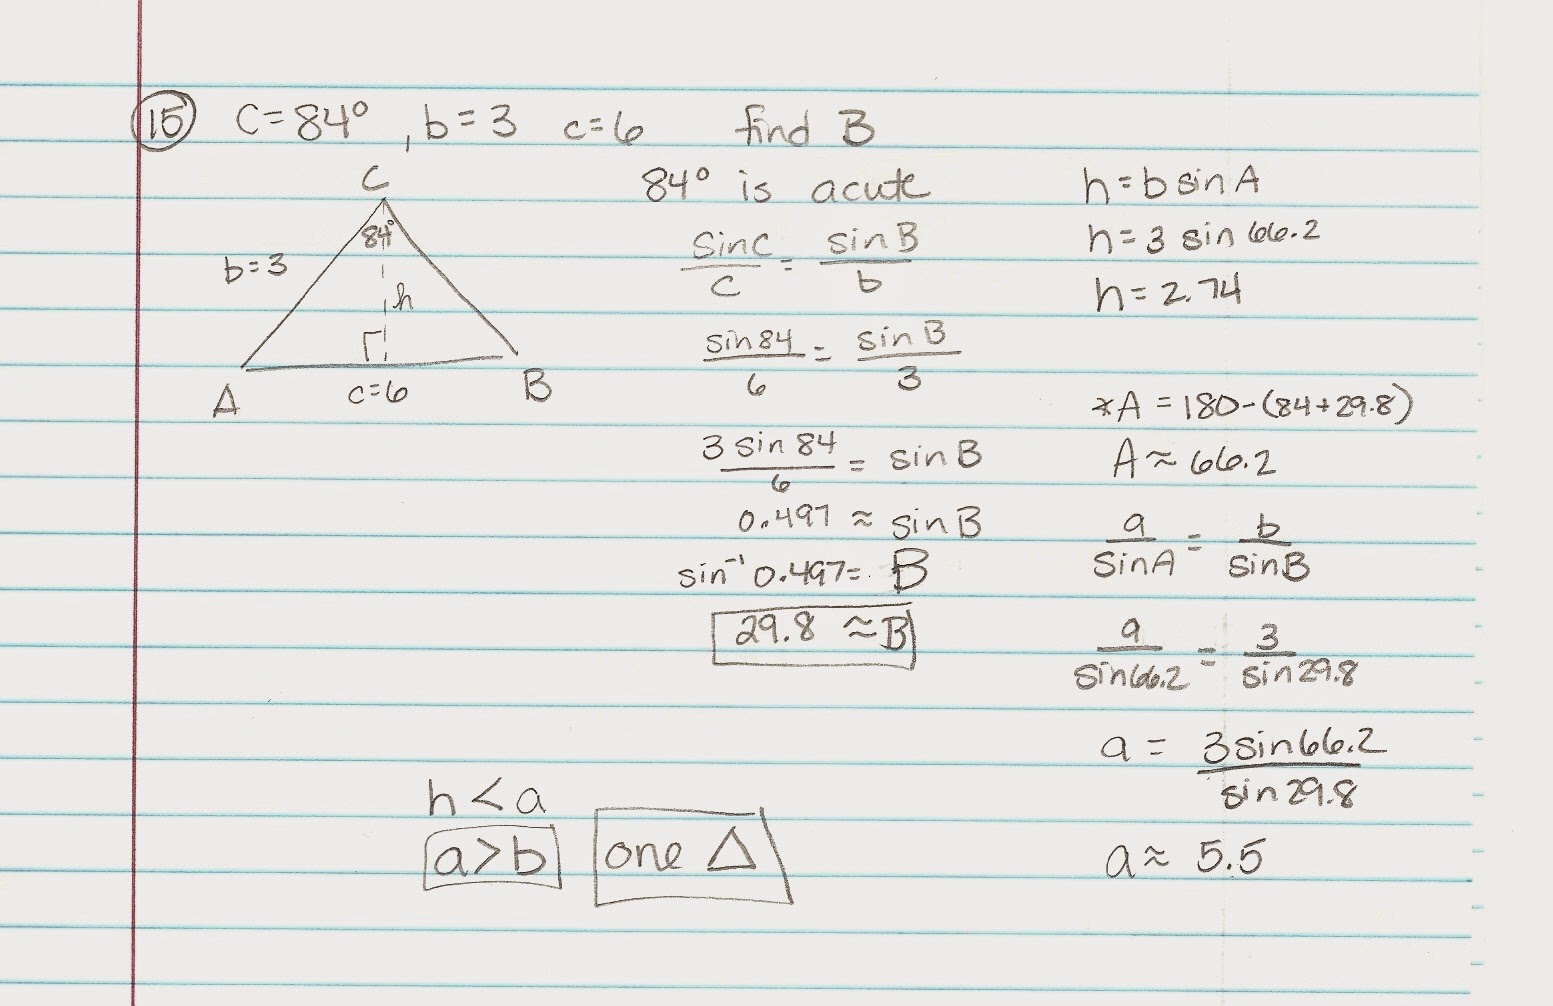 15 C=84° , b=3 c=6 find B
C
84°
b=3
h
A
c=6
B
84° is acute
sin C / c = sin B / b
sin 84 / 6 = sin B / 3
3 sin 84 / 6 = sin B
0.497 ≈ sin B
sin⁻¹ 0.497 = B
29.8 ≈ B
h = b sin A
h = 3 sin 66.2
h = 2.74
*A = 180-(84+29.8)
A ≈ 66.2
a / sin A = b / sin B
a / sin 66.2 = 3 / sin 29.8
a = 3 sin 66.2 / sin 29.8
a ≈ 5.5
h < a
a > b one △